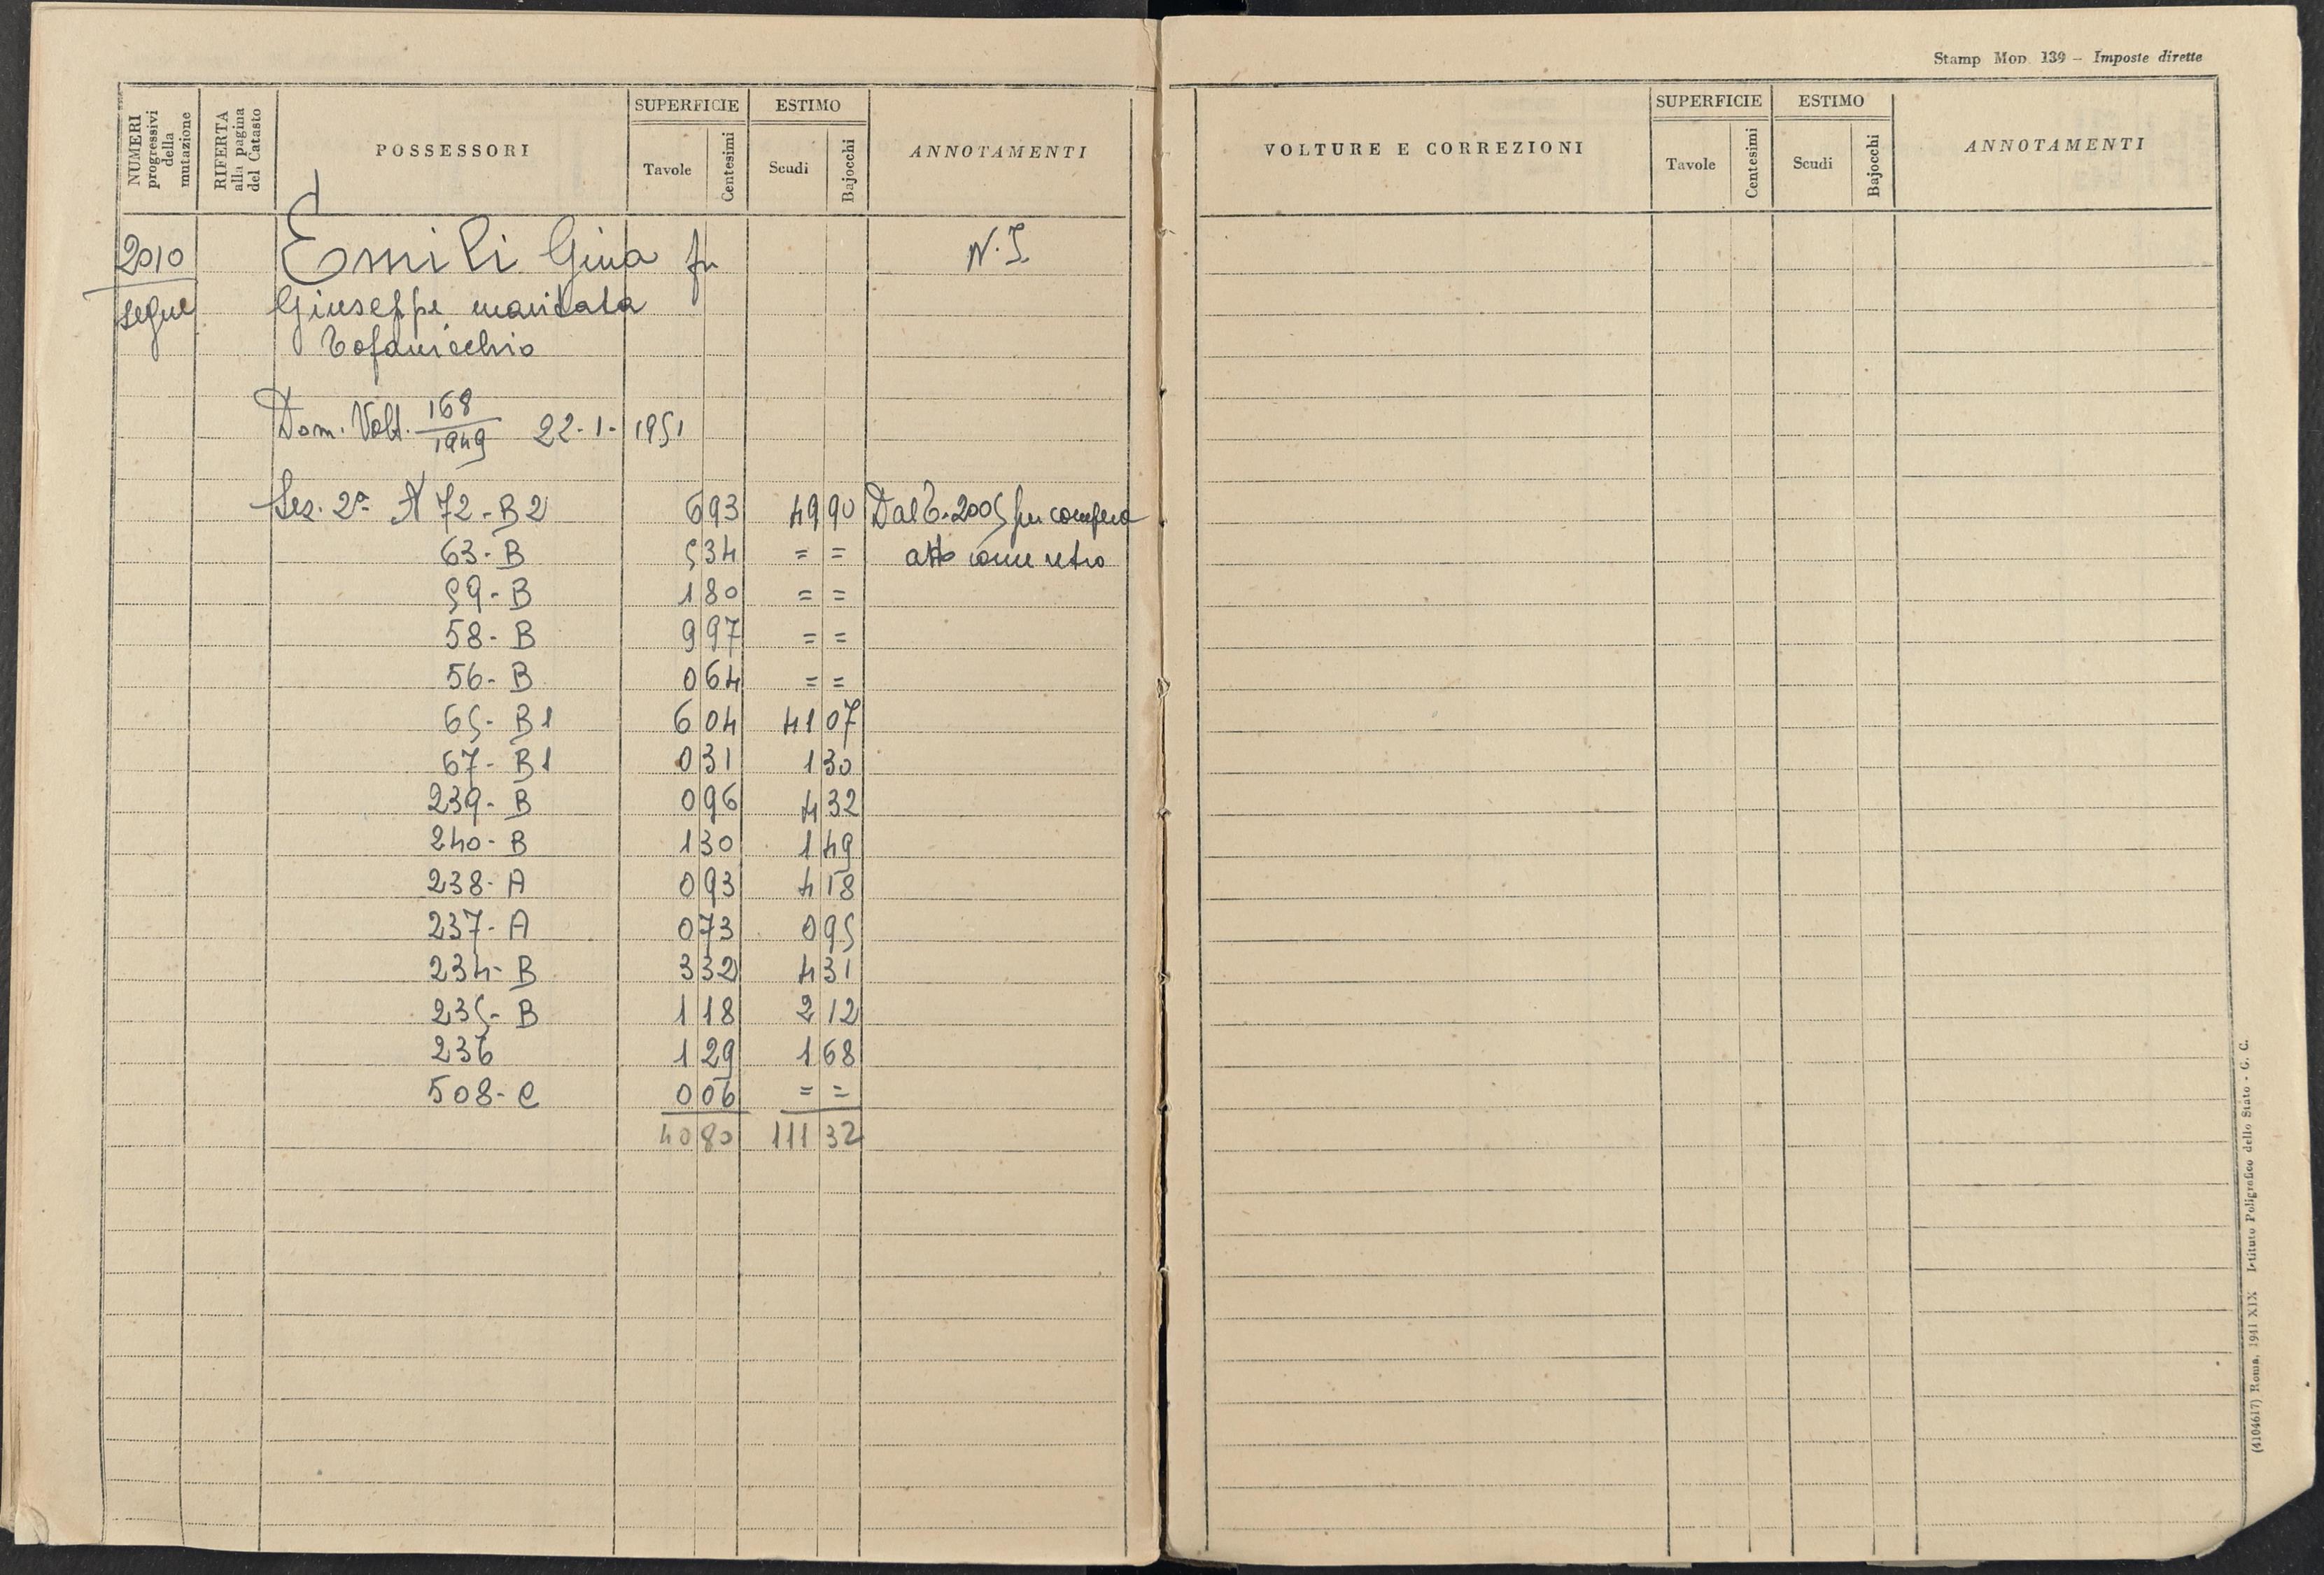 NUMERI progressivi della mutazione
RIFERTA alla pagina del Catasto
POSSESSORI
SUPERFICIE
Tavole
Centesimi
ESTIMO
Scudi
Bajocchi
ANNOTAMENTI
2010 Emili Gina fu N.I.
segue Giuseppe maritata
Tofanicchio
Dom. Volt. 168/1949 22-1-1951
Sez. 2ª N 72-B2 6 93 49 90 Dal T. 2005 per compera
63-B 5 34 = = atto come retro
59-B 1 80 = =
58-B 9 97 = =
56-B 0 64 = =
65-B1 6 04 41 07
67-B1 0 31 1 30
239-B 0 96 4 32
240-B 1 30 1 49
238-A 0 93 4 18
237-A 0 73 0 95
234-B 3 32 4 31
235-B 1 18 2 12
236 1 29 1 68
508-C 0 06 = =
40 80 111 32
Stamp Mod. 139 - Imposte dirette
VOLTURE E CORREZIONI
SUPERFICIE
Tavole
Centesimi
ESTIMO
Scudi
Bajocchi
ANNOTAMENTI
(4104617) Roma, 1941 XIX Istituto Poligrafico dello Stato - G. C.